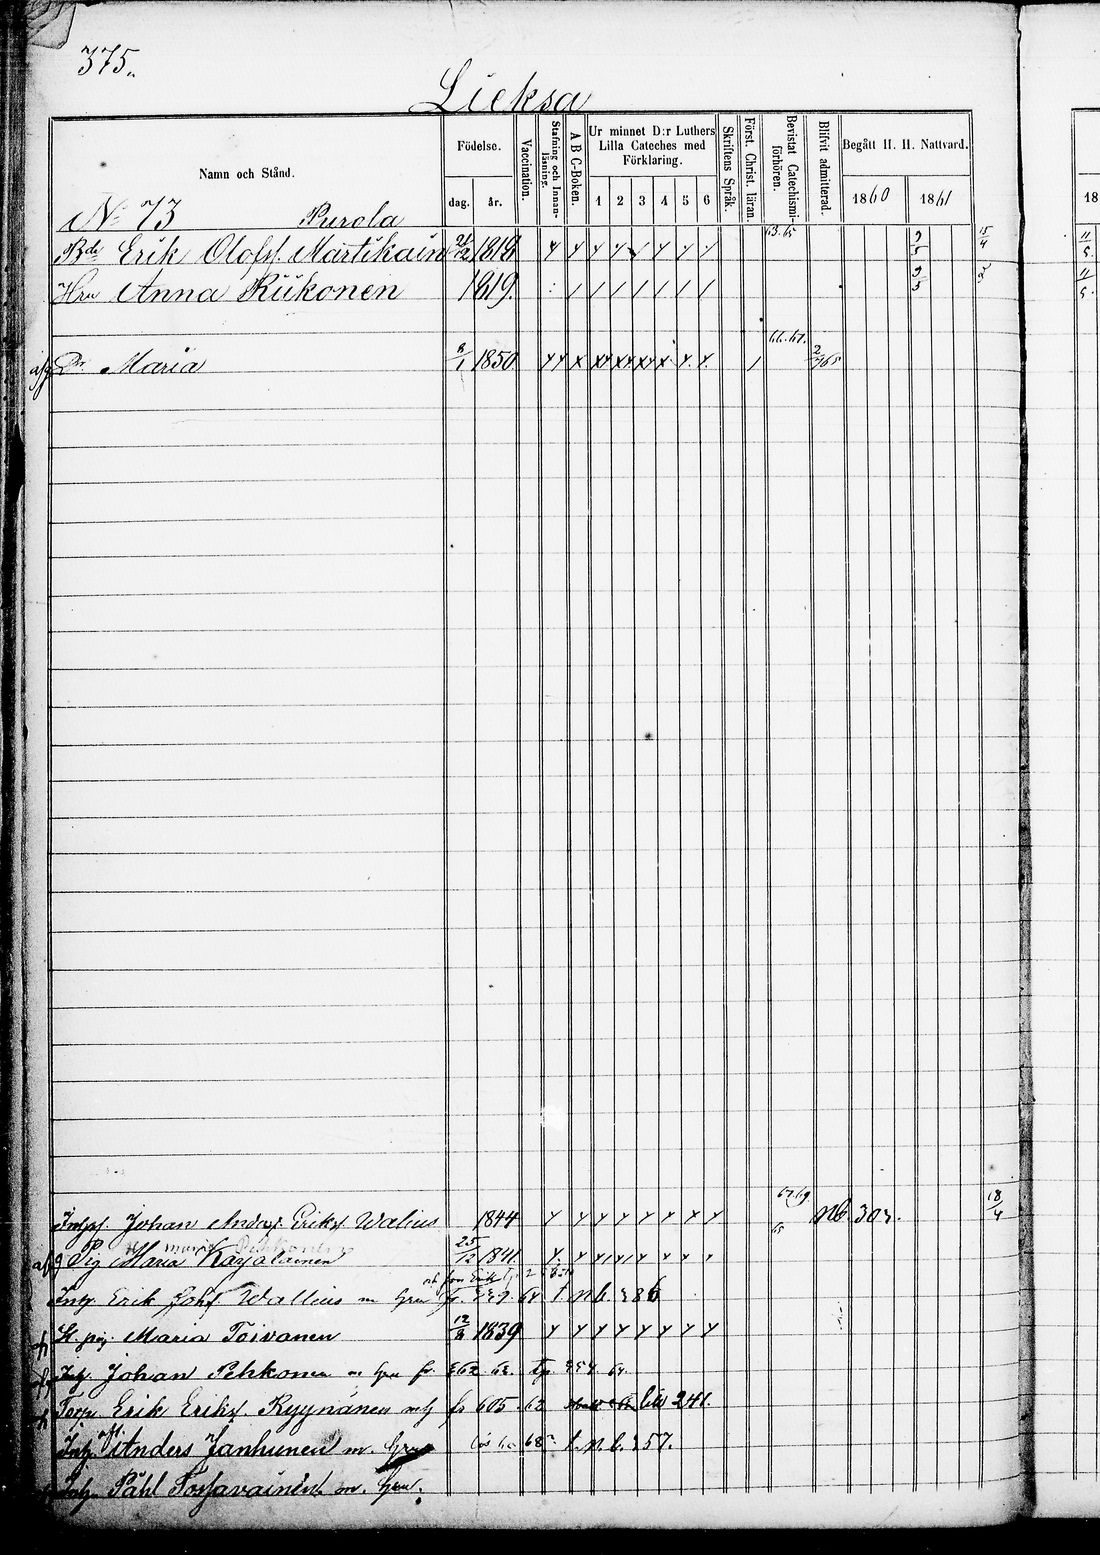 375.
Lieksa
Namn och Stånd.
Födelse.
dag.
år.
Vaccination.
Stafning och Innanläsning.
A B C-Boken.
Ur minnet D:r Luthers Lilla Cateches med Förklaring.
1 2 3 4 5 6
Skriftens Språk.
Först. Christ. läran.
Bevistat Catechismiförhören.
Blifvit admitterad.
Begått H. H. Nattvard.
1860
1861
18
No 73 Purola
Bde Erik Olofss. Martikain 21/12 1818 63.65 9/5 15/4 11/5
Hru Anna Riikonen 1819. 9/5 11/5
Dr Maria 8/1 1850 66.67. 2/7 65
Johan Andr. Eriks. Walius 1844 67.69 65 nb. 303. 18/4
Pig Maria Karjalainen 25/12 1841
Inh. Erik Johs Wallius m hru 64 t. n. b. 386
pig. Maria Toivanen 12/8 1839
Inh. Johan Pehkonen m hru fr 362. 62. 354 64.
Torp. Erik Eriks. Ryynänen m hr fr 605. 62 241.
Inh. Anders Janhunen m. hru 68 t. n. b. 357.
Inh. Påhl Torfavainen m. hru.